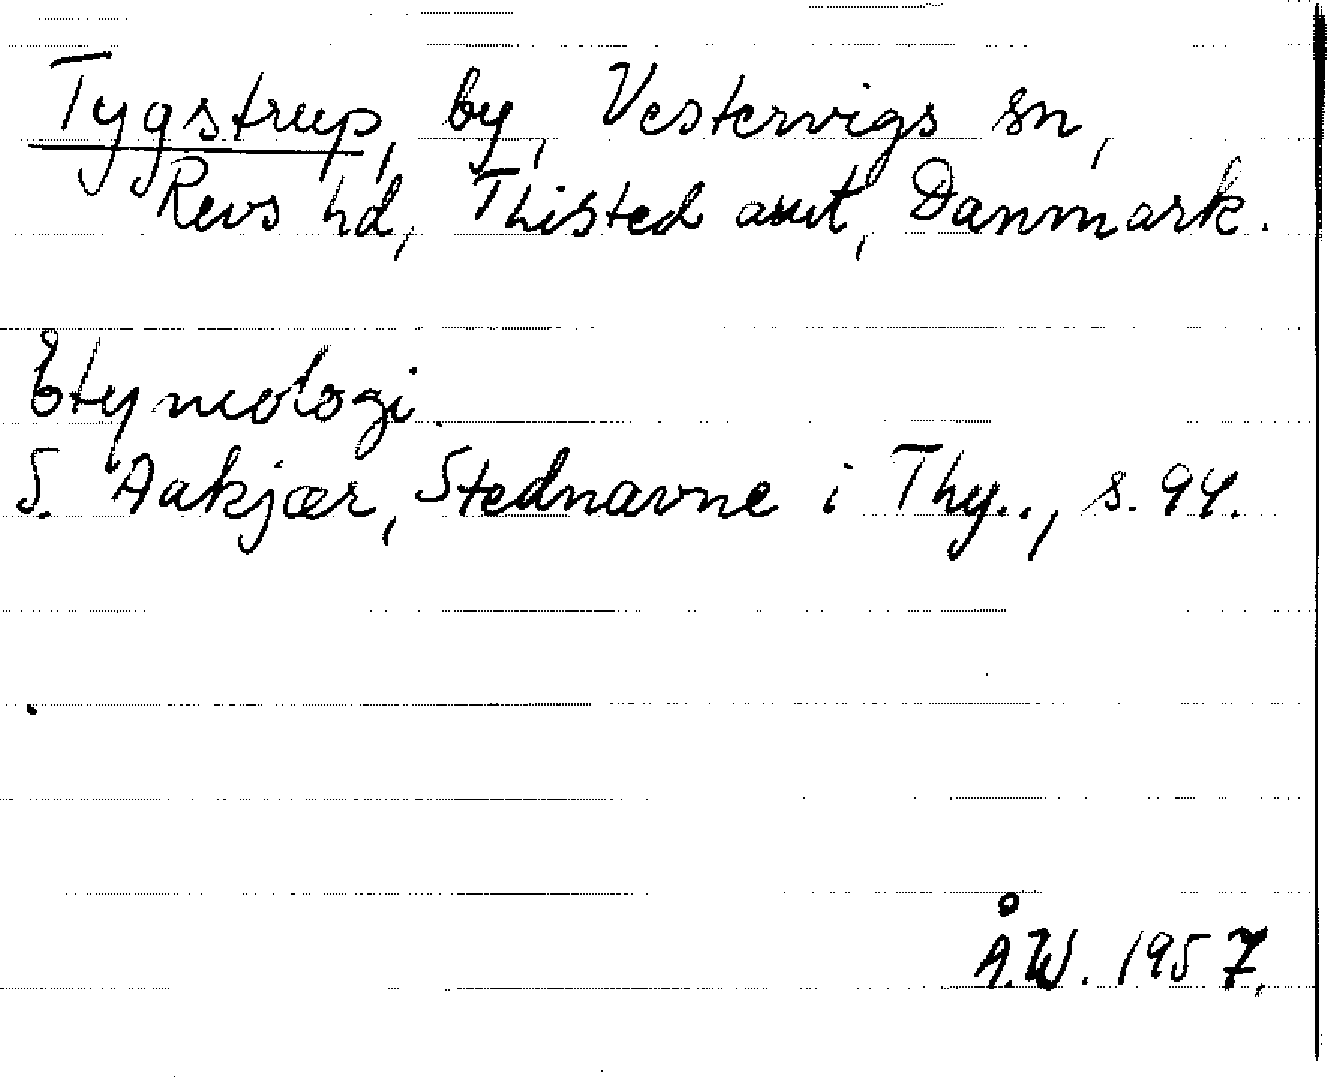 Tygstrup, by, Vestervigs sn,
Revs hd, Thisted amt, Danmark.
Etymologi.
S. Aakjær, Stednavne i Thy.., s. 94.
Å.W. 1957.